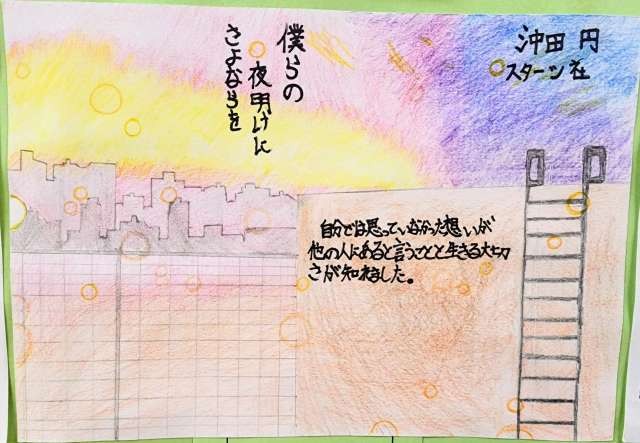 僕らの
夜明けに
さよならを
沖田 円
スターツ社
自分では思っていなかった想いが
他の人にあると言うことと生きる大切
さが知れました。